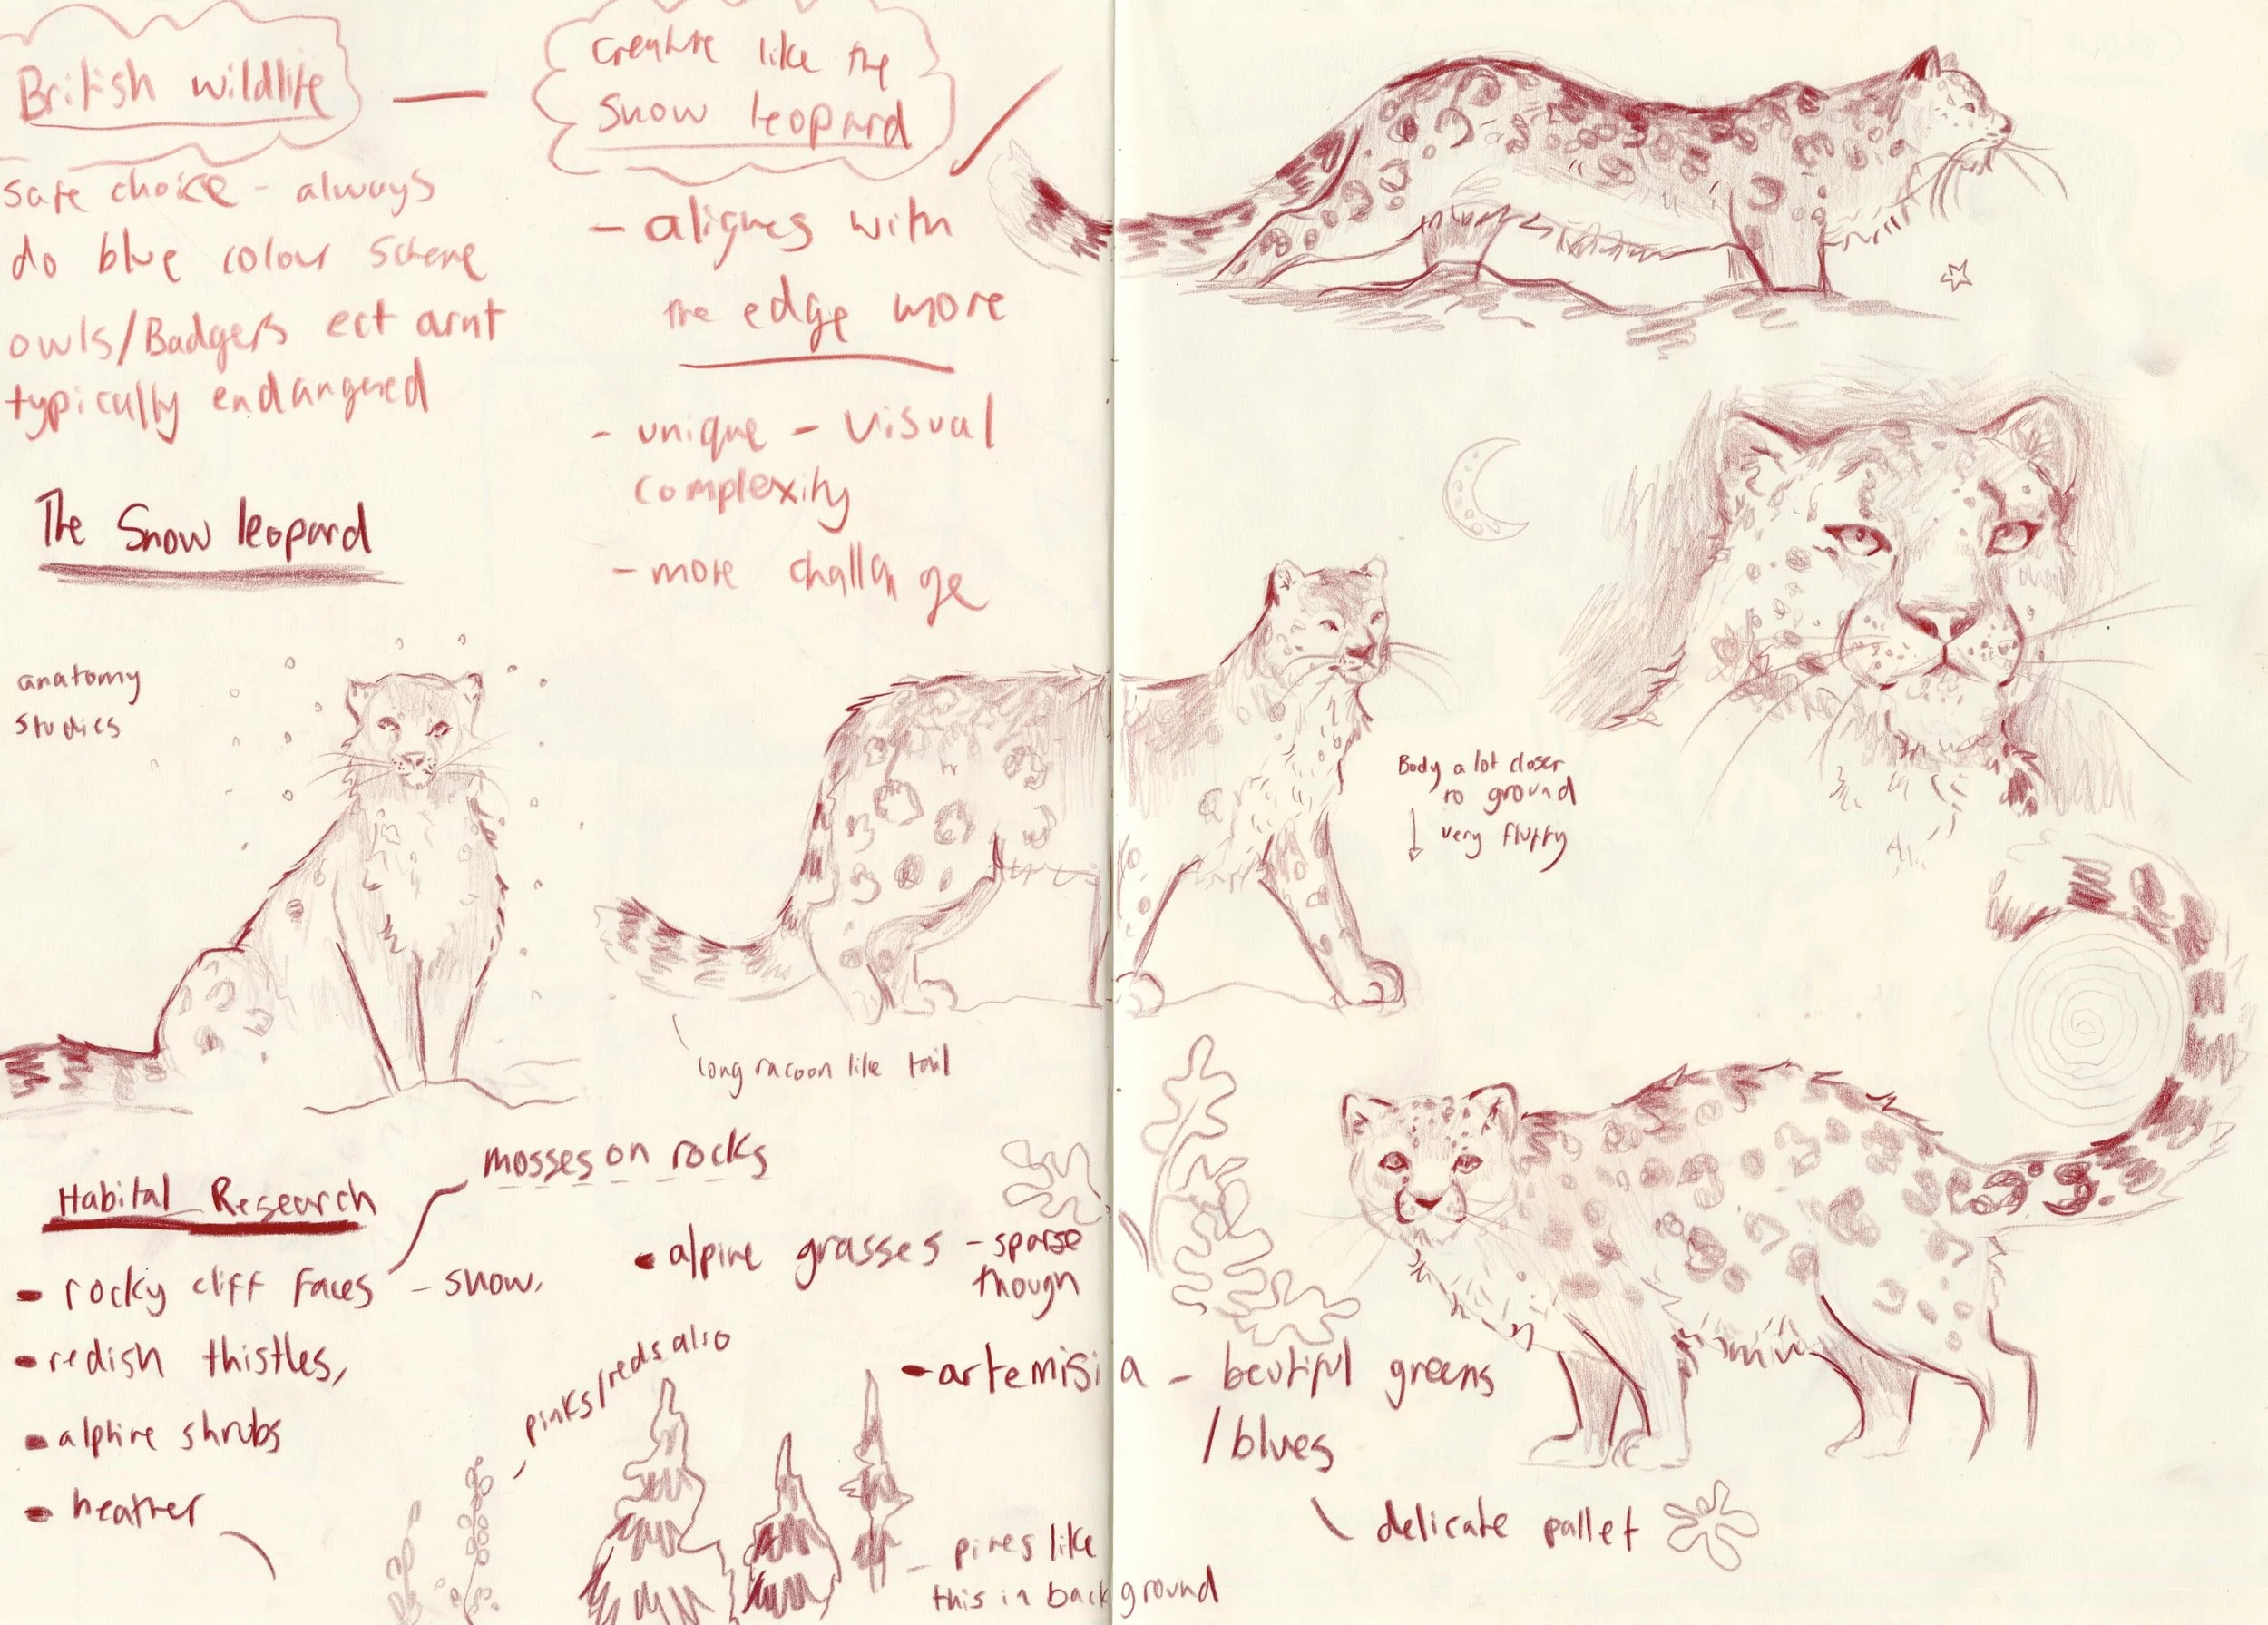 British wildlife —
safe choice - always
do blue colour scheme
owls/Badgers ect arnt
typically endangered
Creature like the
Snow leopard
- alignes with
the edge more
- unique - visual
complexity
- more challange
The Snow leopard
anatomy
studies
long racoon like tail
Body a lot closer
to ground
very fluffy
Habital Research
- rocky cliff faces - snow,
mosses on rocks
- redish thistles,
- alphire shrubs
- heather
pinks/reds also
- alpine grasses - sparse
though
- artemisia - beutiful greens
/blues
delicate pallet
- pines like
this in background